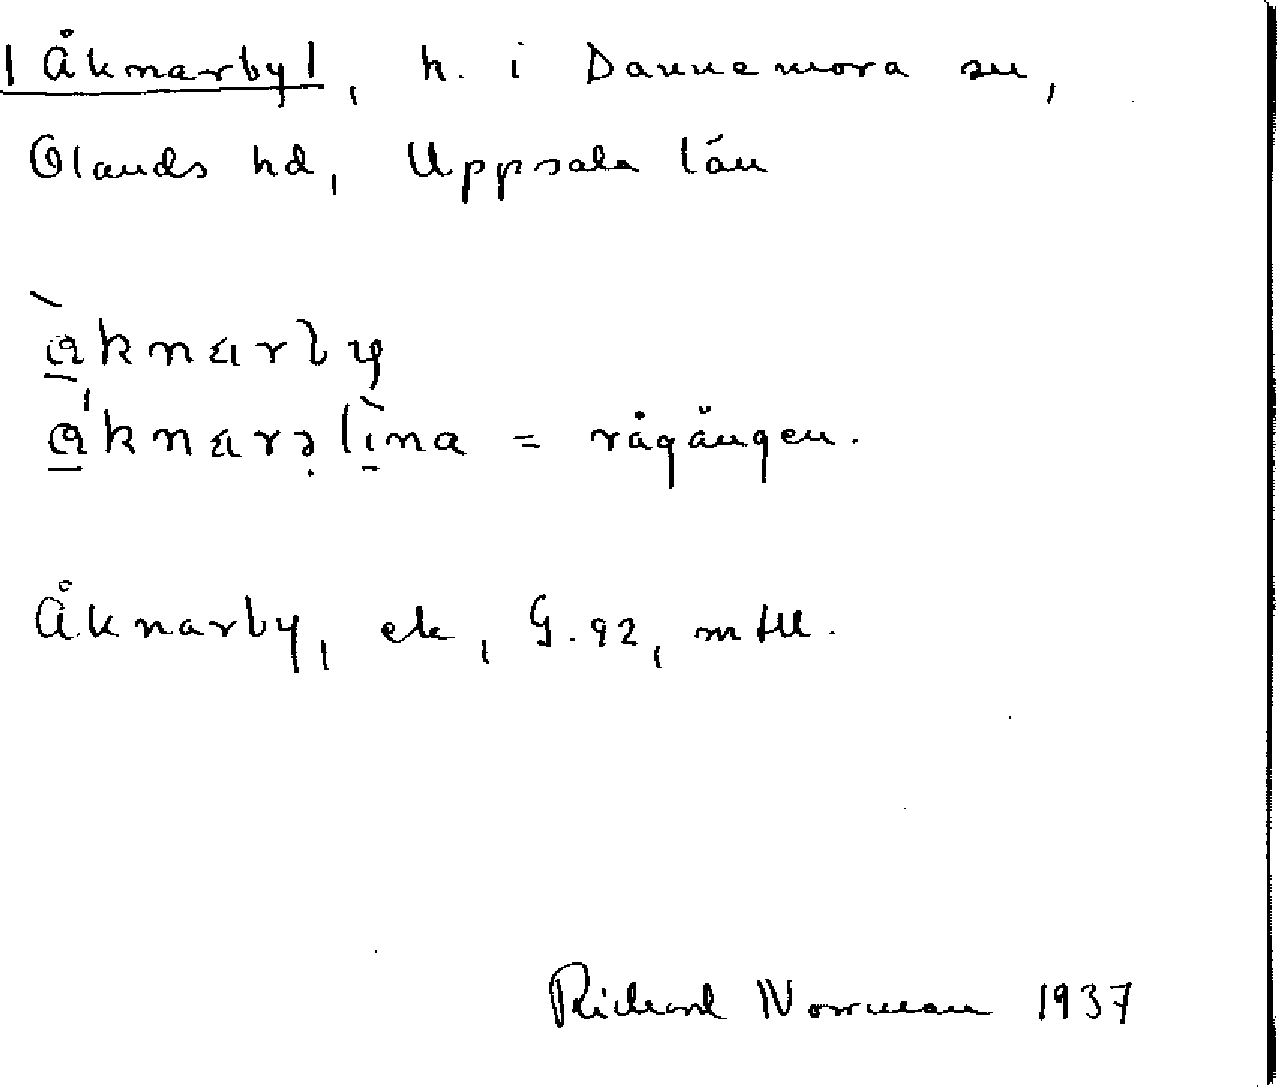 |Åkmarby|, h. i Dannemora sn,
Olands hd, Uppsala län
åknarby
åknarəlina = rågången.
Åknarby, ek, G. 92, mtll.
Richard Norrman 1937